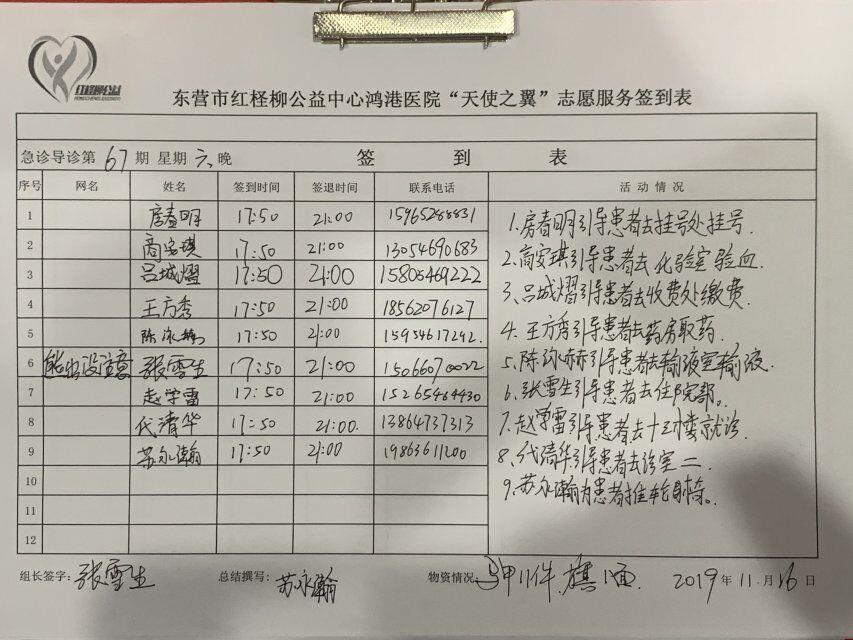 红柽柳公益
东营市红柽柳公益中心鸿港医院“天使之翼”志愿服务签到表
急诊导诊第 67 期 星期 六 晚 签 到 表
序号 网名 姓名 签到时间 签退时间 联系电话 活动情况
1 房春明 17:50 21:00 15965288831
2 高安琪 17:50 21:00 13054690683
3 吕城熠 17:50 21:00 15805469222
4 王方秀 17:50 21:00 18562076127
5 陈 17:50 21:00 15954617292
6 能出没注意 张雪生 17:50 21:00 15066070022
7 赵学雷 17:50 21:00 15265464430
8 代清华 17:50 21:00 13864737313
9 苏永瀚 17:50 21:00 19863611200
10
11
12
1.房春明引导患者去挂号处挂号.
2.高安琪引导患者去化验室验血.
3.吕城熠引导患者去收费处缴费.
4.王方秀引导患者去药房取药.
5.陈引导患者去输液室输液.
6.张雪生引导患者去住院部。
7.赵学雷引导患者去楼就诊.
8.代清华引导患者去诊室二.
9.苏永瀚为患者推轮椅。
组长签字: 张雪生 总结撰写: 苏永瀚 物资情况: 马甲11件.旗1面. 2019 年 11 月 16 日